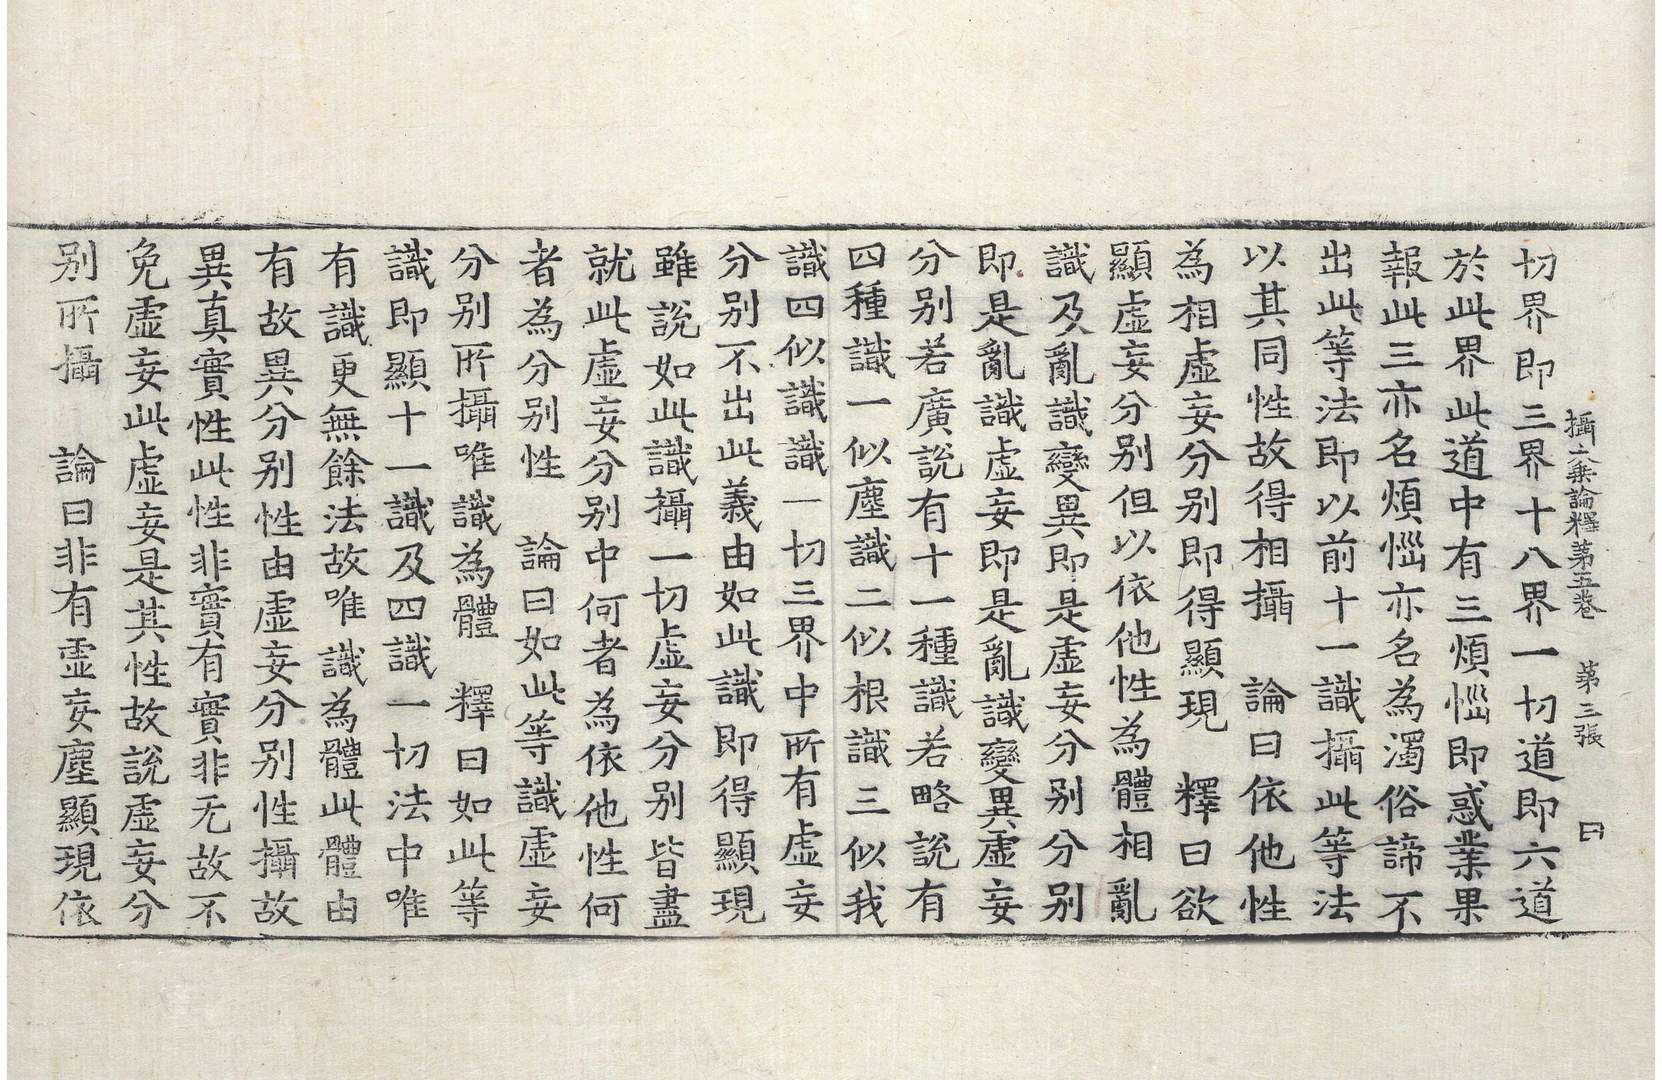 攝大乗論釋第五卷 第三張 曰
切界即三界十八界一切道即六道
於此界此道中有三煩惱即惑業果
報此三亦名煩惱亦名為濁俗諦不
出此等法即以前十一識攝此等法
以其同性故得相攝 論曰依他性
為相虛妄分別即得顯現 釋曰欲
顯虛妄分別但以依他性為體相亂
識及亂識變異即是虛妄分別分別
即是亂識虛妄即是亂識變異虛妄
分別若廣說有十一種識若略說有
四種識一似塵識二似根識三似我
識四似識識一切三界中所有虛妄
分別不出此義由如此識即得顯現
雖說如此識攝一切虛妄分別皆盡
就此虛妄分別中何者為依他性何
者為分別性 論曰如此等識虛妄
分別所攝唯識為體 釋曰如此等
識即顯十一識及四識一切法中唯
有識更無餘法故唯識為體此體由
有故異分別性由虛妄分別性攝故
異真實性此性非實有實非无故不
免虛妄此虛妄是其性故說虛妄分
別所攝 論曰非有虛妄塵顯現依